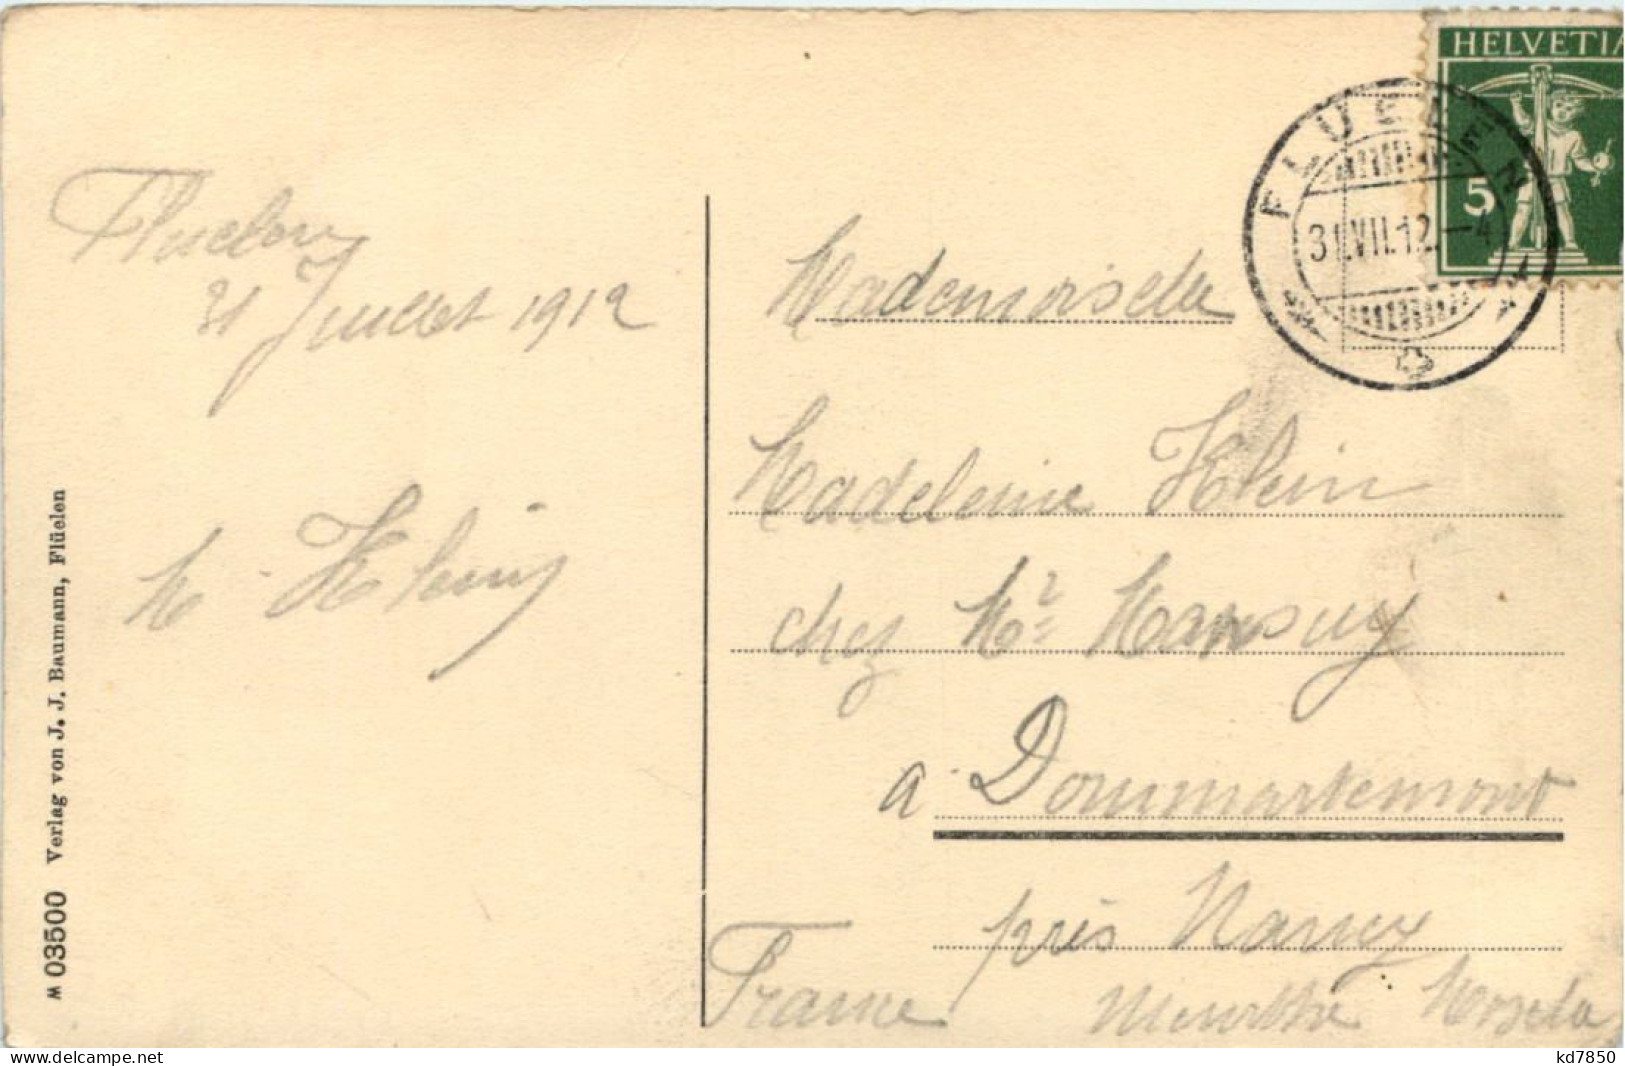 Fluelen
31 Juillet 1912
M. Klein
M 03500 Verlag von J. J. Baumann, Flüelen
HELVETIA
5
FLUELEN
31.VII.12.–4
Mademoiselle
Madeleine Klein
chez Mr Mansuy
a Dommartemont
près Nancy
France Meurthe Moselle
www.delcampe.net
kd7850